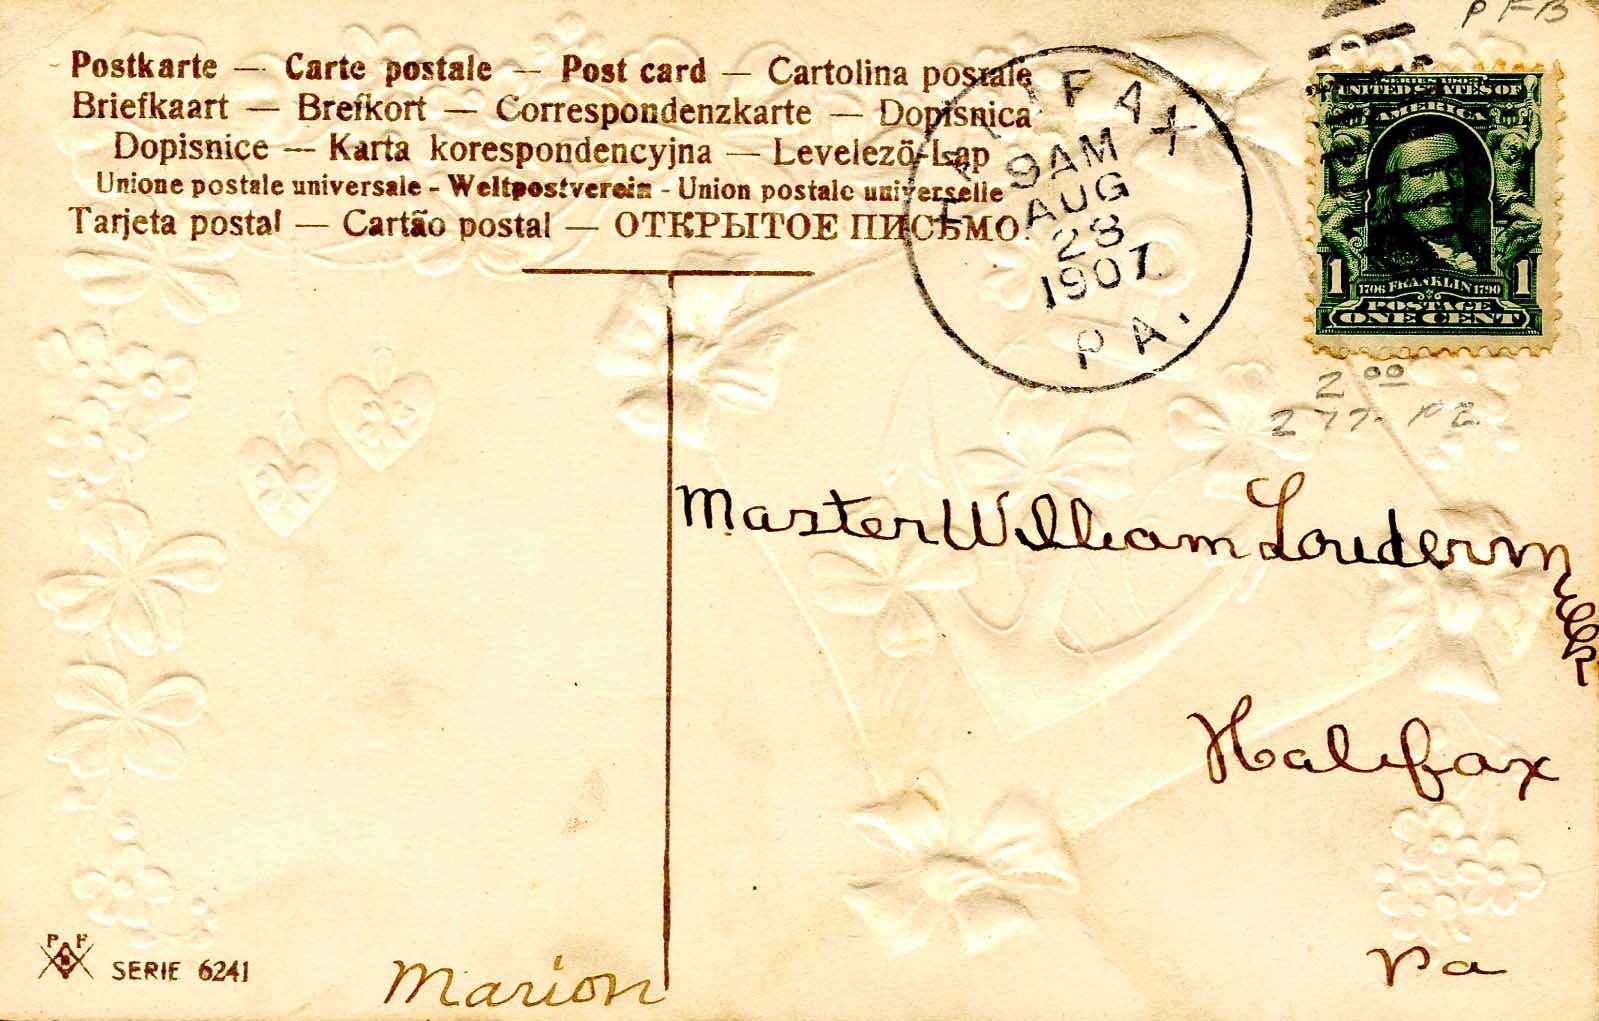 PFB
Postkarte — Carte postale — Post card — Cartolina postale
Briefkaart — Brefkort — Correspondenzkarte — Dopisnica
Dopisnice — Karta korespondencyjna — Levelező-Lap
Unione postale universale - Weltpostverein - Union postale universelle
Tarjeta postal — Cartão postal — ОТКРЫТОЕ ПИСЬМО.
HALIFAX
9AM
AUG
28
1907
PA.
SERIES 1902
UNITED STATES OF
AMERICA
1 1706 FRANKLIN 1790 1
POSTAGE
ONE CENT
2 00
Master William Loudermilk
Halifax
Pa
P F
B
SERIE 6241
Marion